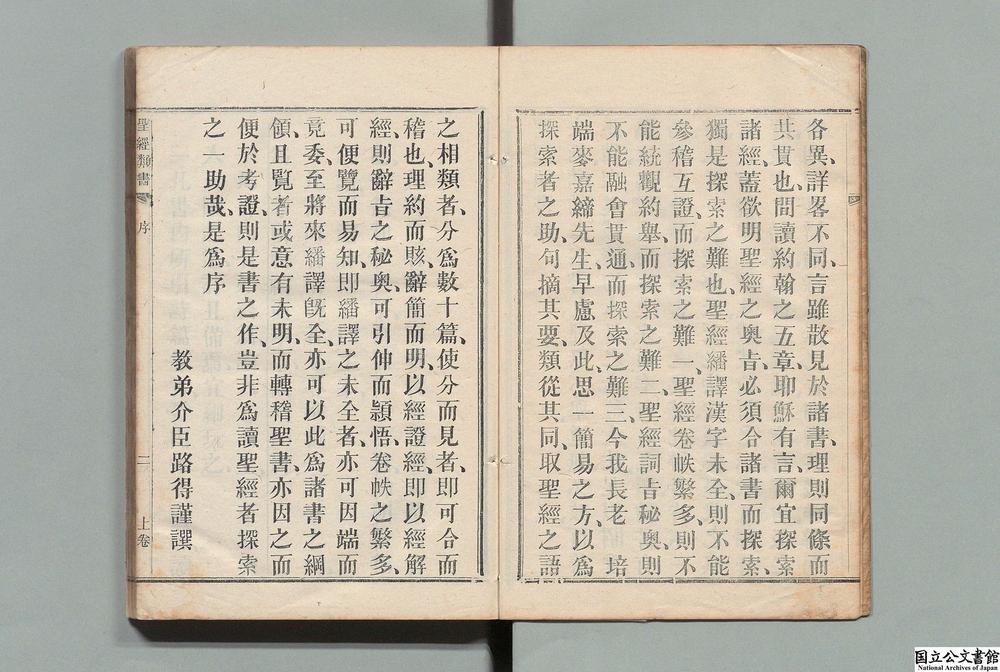 各異、詳畧不同、言雖散見於諸書、理則同條而
共貫也、間讀約翰之五章、耶穌有言、爾宜探索
諸經、蓋欲明聖經之奧旨、必須合諸書而探索、
獨是探索之難也、聖經繙譯漢字未全、則不能
參稽互證、而探索之難一、聖經卷帙繁多、則不
能統觀約舉、而探索之難二、聖經詞旨秘奧、則
不能融會貫通、而探索之難三、今我長老 培
端麥嘉締先生、早慮及此、思一簡易之方、以爲
探索者之助、句摘其要、類從其同、取聖經之語
之相類者、分爲數十篇、使分而見者、即可合而
稽也、理約而賅、辭簡而明、以經證經、即以經解
經、則辭旨之秘奧、可引伸而穎悟、卷帙之繁多、
可便覽而易知、即繙譯之未全者、亦可因端而
竟委、至將來繙譯旣全、亦可以此爲諸書之綱
領、且覽者或意有未明、而轉稽聖書、亦因之而
便於考證、則是書之作、豈非爲讀聖經者探索
之一助哉、是爲序
教弟介臣路得謹譔
聖經類書 序 二 上卷
国立公文書館
National Archives of Japan